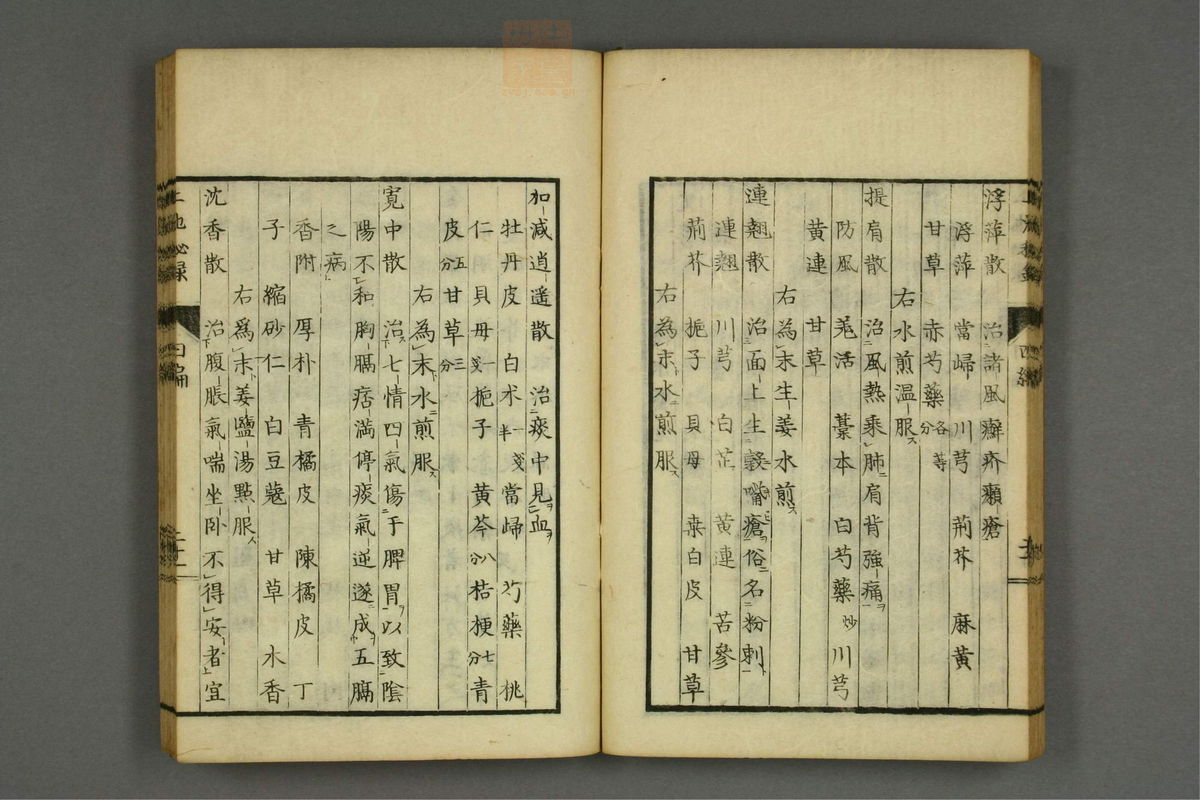 浮萍散　治諸風癬疥癩瘡
浮萍　當歸　川芎　荊芥　麻黄
甘草　赤芍藥各等分
右水煎温服ス
提肩散　治風熱乘肺肩背強痛ヲ
防風　羗活　藁本　白芍藥炒　川芎
黄連　甘草
右為末生姜水煎ス
連翹散　治面上生瘡俗名粉刺
連翹　川芎　白芷　黄連　苦參
荊芥　梔子　貝母　桒白皮　甘草
右為末水煎服ス
加減逍遥散　治痰中見血ヲ
牡丹皮　白术一戔半　當歸　芍藥　桃
仁　貝母一戔　梔子　黄芩八分　桔梗七分　青
皮五分　甘草三分
右為末水煎服ス
寛中散　治七情四氣傷于脾胃以致陰
陽不和胸膈痞満停痰氣逆遂成五膈
之病
香附　厚朴　青橘皮　陳橘皮　丁
子　縮砂仁　白豆蔻　甘草　木香
右爲末姜鹽湯點服ス
沈香散　治腹脹氣喘坐卧不得安者宜
四編